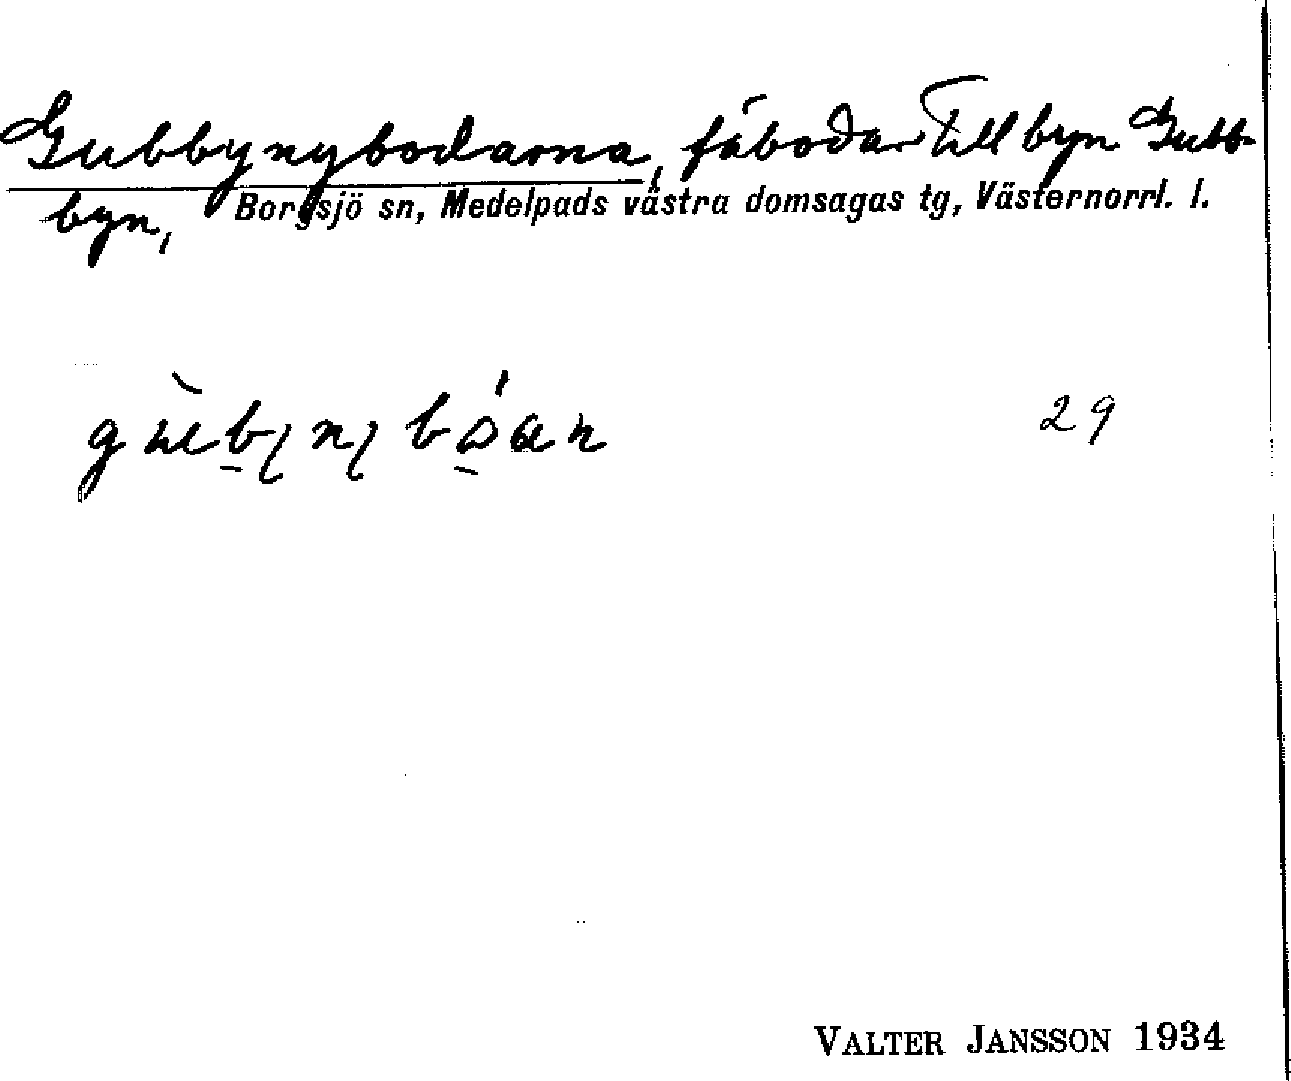 Gubbynybodarna, fäbodar till byn Gubb-
byn, Borgsjö sn, Medelpads västra domsagas tg, Västernorrl. l.
29
VALTER JANSSON 1934